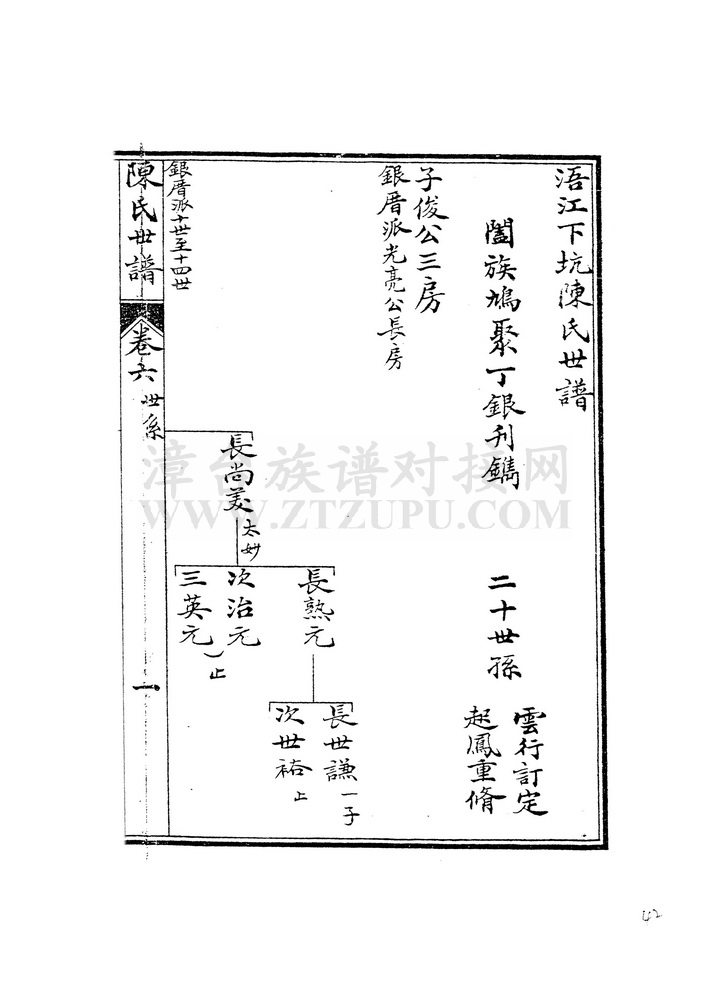 浯江下坑陳氏世譜
闔族鳩聚丁銀刋鐫
二十世孫
雲行訂定
起鳳重脩
子俊公三房
銀厝派光亮公長房
長尚美
太妙
長熟元
次治元
三英元
止
長世謙
一子
次世裕
止
銀厝派十世至十四世
陳氏世譜
卷六
世系
一
漳台族谱对接网
WWW.ZTZUPU.COM
42